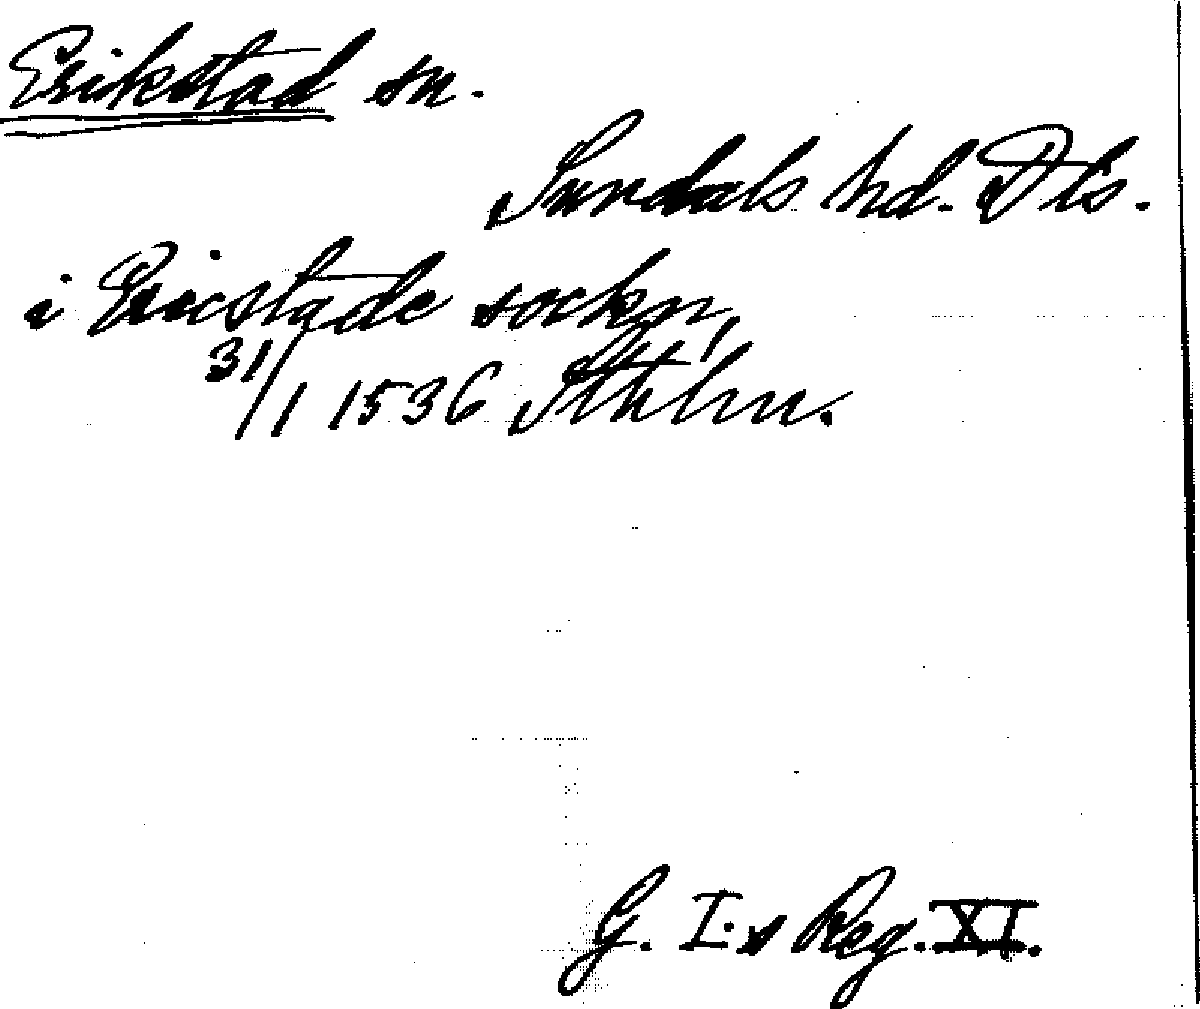 Erikstad sn.
Sundals hd. Dls.
i Ericstade sockn,
31/1 1536 Sthlm.
G. I:s Reg. XI.